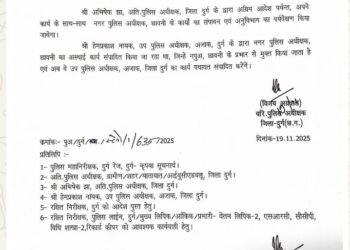 श्री अभिषेक झा, अति.पुलिस अधीक्षक, जिला दुर्ग के द्वारा अग्रिम आदेश पर्यन्त, अपने
कार्य के साथ-साथ नगर पुलिस अधीक्षक, छावनी के कार्यों का संपादन एवं अनुविभाग का पर्यवेक्षण किया
जावेगा।
श्री हेमप्रकाश नायक, उप पुलिस अधीक्षक, अजाक, दुर्ग के द्वारा नगर पुलिस अधीक्षक,
छावनी का अस्थाई कार्य संपादित किया जा रहा था, जिन्हें नपुअ, छावनी के प्रभार से मुक्त किया जाता है
एवं अब वे उप पुलिस अधीक्षक, अजाक, जिला दुर्ग का कार्य यथावत संपादित करेंगें।
(विजय अग्रवाल)
वरि.पुलिस अधीक्षक
जिला-दुर्ग(छ.ग.)
क्रमांक: पुअ/दुर्ग/ /2025
दिनांक-19.11.2025
प्रतिलिपि :-
1- पुलिस महानिरीक्षक, दुर्ग रेंज, दुर्ग- कृपया सूचनार्थ।
2- अति.पुलिस अधीक्षक, ग्रामीण/शहर/यातायात/आईयूसीएडब्लू, जिला दुर्ग।
3- श्री अभिषेक झा, अति.पुलिस अधीक्षक, जिला दुर्ग।
4- श्री हेमप्रकाश नायक, उप पुलिस अधीक्षक, अजाक, जिला दुर्ग।
5- रक्षित निरीक्षक, दुर्ग को आदेश पुस्त हेतु।
6- रक्षित निरीक्षक, पुलिस लाईन, दुर्ग/मुख्य लिपिक/आंकिक/प्रभारी- वेतन लिपिक-2, एसआरसी, सीसीपी,
विधि शाखा-2,रिकार्ड कीपर को आवश्यक कार्यवाही हेतु।